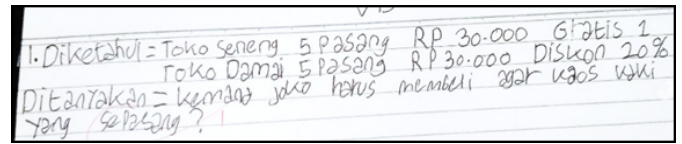 1. Diketahui = Toko Seneng 5 Pasang RP 30.000 Gratis 1
Toko Damai 5 Pasang RP 30.000 Diskon 20%
Ditanyakan = Kemana joko harus membeli agar kaos kaki
yang sepasang?